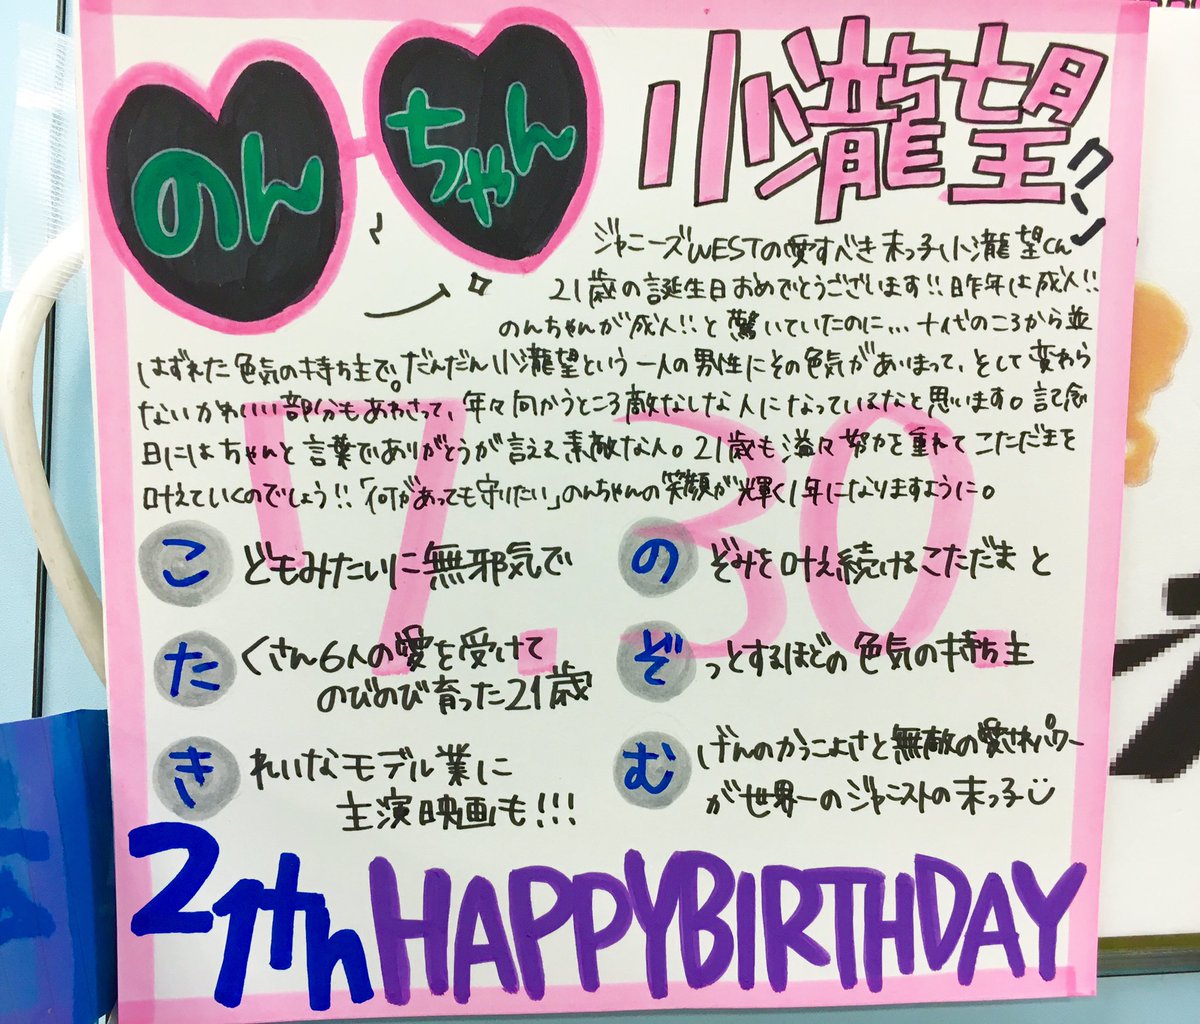 のんちゃん
小瀧望クン
ジャニーズWESTの愛すべき末っ子小瀧望くん
21歳の誕生日おめでとうございます!!昨年は成人!!
のんちゃんが成人!!と驚いていたのに…十代のころから並
はずれた色気の持ち主で。だんだん小瀧望という一人の男性にその色気があいまって、そして変わら
ないかわいい部分もあわさって、年々向かうところ敵なしな人になっているなと思います。記念
日にはちゃんと言葉でありがとうが言える素敵な人。21歳も益々努力を重ねてこただまを
叶えていくのでしょう!!「何があっても守りたい」のんちゃんの笑顔が輝く1年になりますように。
7.30.
こどもみたいに無邪気で
たくさん6人の愛を受けて
のびのび育った21歳
きれいなモデル業に
主演映画も!!!
のぞみを叶え続けるこただまと
ぞっとするほどの色気の持ち主
むげんのかっこよさと無敵の愛されパワー
が世界一のジャニストの末っ子
21th HAPPYBIRTHDAY